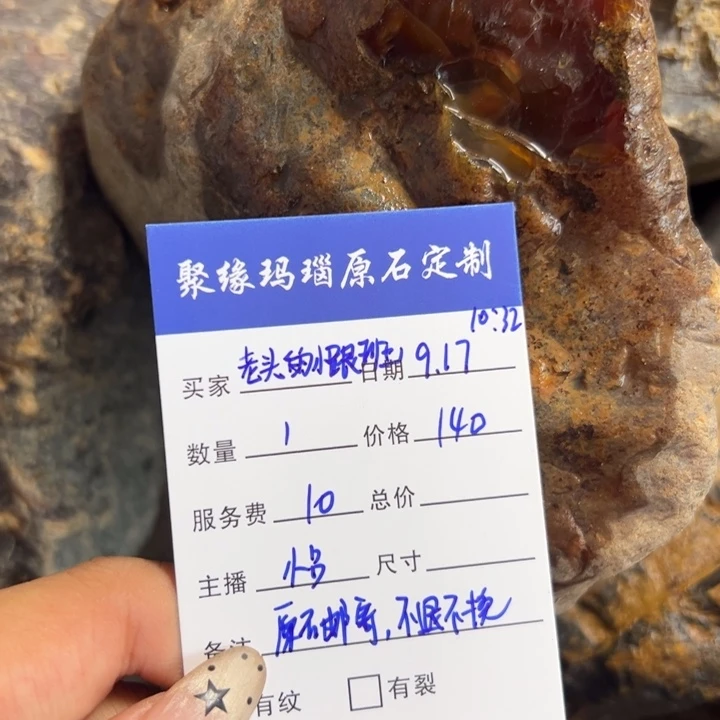 聚缘玛瑙原石定制
10:32
买家 老头的小跟班 日期 9.17
数量 1 价格 140
服务费 10 总价
主播 尺寸
备注 原石邮寄,不退不换
有纹 有裂